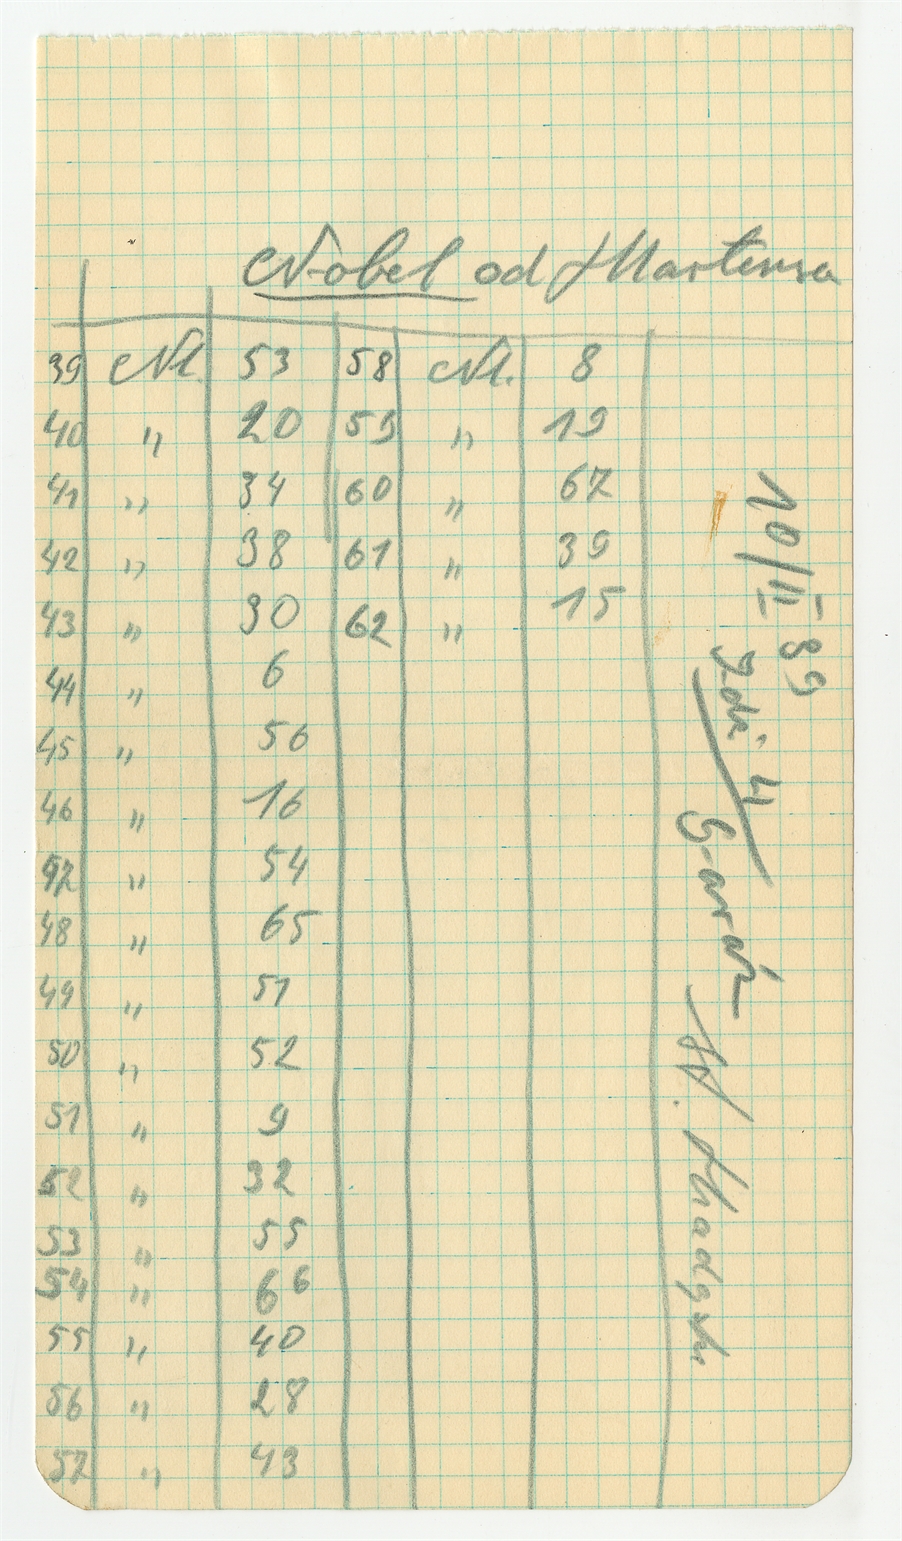 Nobel od Martensa
39 Nl. 53 58 Nl. 8
40 " 20 59 " 19
41 " 34 60 " 67
42 " 38 61 " 39
43 " 30 62 " 15
44 " 6
45 " 56
46 " 16
47 " 54
48 " 65
49 " 51
50 " 52
51 " 9
52 " 32
53 " 55
54 " 66
55 " 40
56 " 28
57 " 43
10/II 89